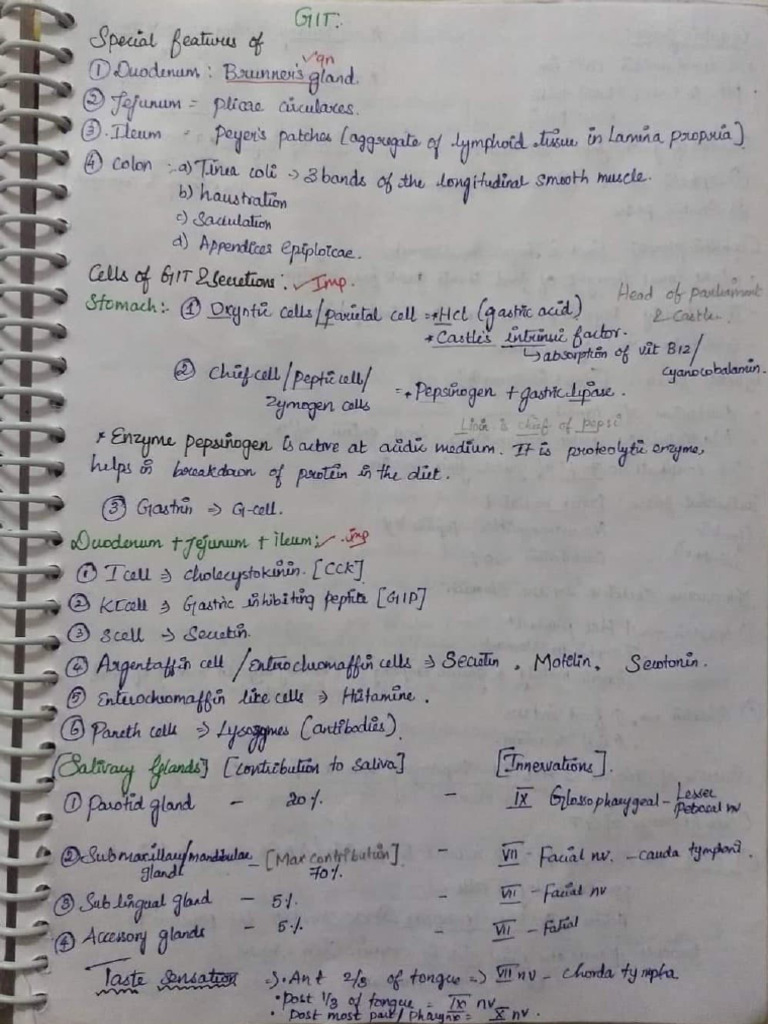 GIT.
Special features of
① Duodenum : Brunner's gland. ✓qn
② Jejunum = plicae circulares.
③ Ileum - Peyer's patches [aggregate of lymphoid tissue in Lamina propria]
④ Colon :- a) Tinea coli → 3 bands of the longitudinal smooth muscle.
b) haustration
c) Sacculation
d) Appendices Epiploicae.
Cells of GIT & Secretions: ✓Imp.
Head of parliament
& Castle.
Stomach:- ① Oxyntic cells/parietal cell = *Hcl (gastric acid)
* Castle's intrinsic factor.
↳ absorption of vit B12/
cyanocobalamin.
② Chief cell/Peptic cell/
Zymogen cells = * Pepsinogen + gastric lipase.
Lion is chief of pepsi
* Enzyme pepsinogen is active at acidic medium. It is proteolytic enzyme,
helps in breakdown of protein in the diet.
③ Gastrin ⇒ G-cell.
Duodenum + Jejunum + ileum:- ✓imp
① I cell ⇒ cholecystokinin. [CCK]
② K cell ⇒ Gastric inhibiting peptide [GIP]
③ S cell → Secretin.
④ Argentaffin cell / Enterochromaffin cells ⇒ Secretin, Motelin, Serotonin.
⑤ Enterochromaffin like cells ⇒ Histamine.
⑥ Paneth cells ⇒ Lysozymes (antibodies).
[Salivary Glands] [contribution to Saliva] [Innervations].
① Parotid gland - 20% - IX Glossopharygeal - Lesser
Petrosal nv
② Submaxillary/mandibular
glands - [Max contribution]
70% - VII - Facial nv. - cauda tymphani.
③ Sub lingual gland - 5% - VII - Facial nv
④ Accessory glands - 5% - VII - Facial
Taste Sensation ⇒ • Ant 2/3 of tongue ⇒ VII nv - chorda tympha
• Post 1/3 of tongue = IX nv
• Post most part/ Pharynx = X nv.